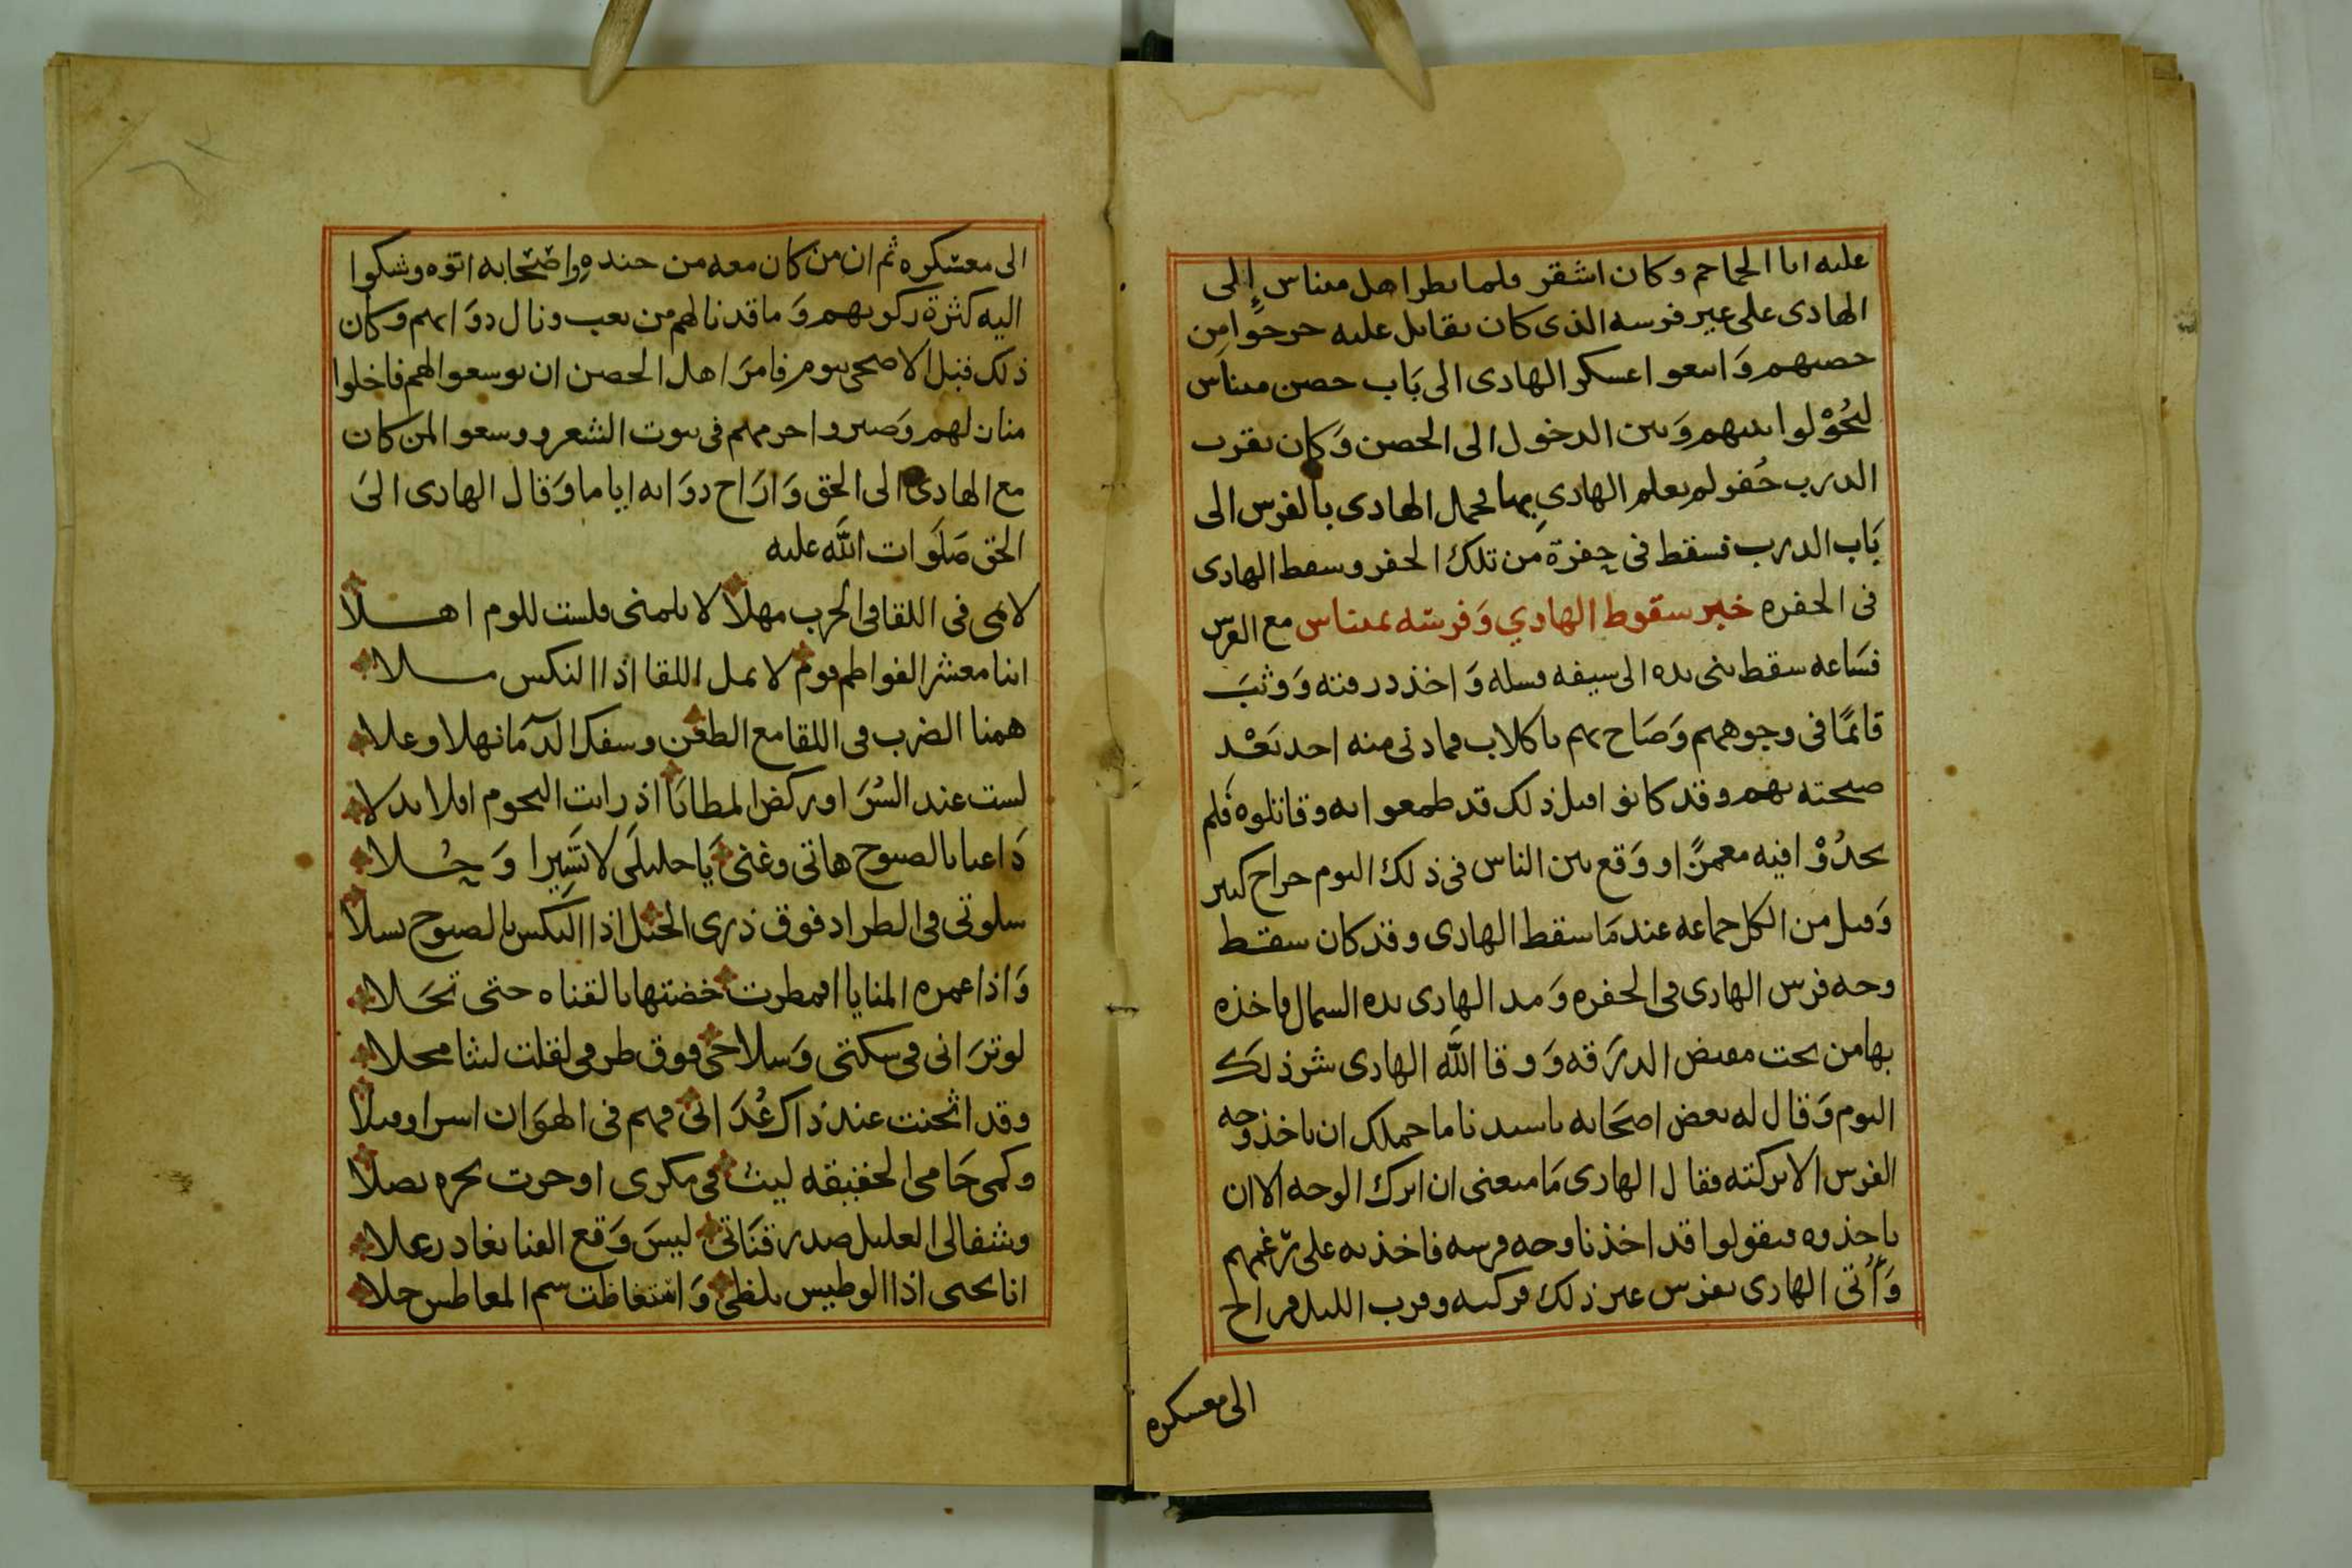 عليه ابا الجماجم وكان اشقر فلما نظر اهل ميناس إلى
الهادى على غير فرسه الذى كان يقاتل عليه خرجوا من
حصنهم وَاتبعوا عسكر الهادى الى بَاب حصن ميناس
ليَحُوْلوا بينهم وَبين الدخول الى الحصن وَكان بقرب
الدرب حُفر لم يعلم الهادى بها فحمل الهادى بالفرس الى
بَاب الدرب فسقط فى حِفرة من تلك الحفر وسقط الهادى
فى الحفره خبر سقوط الهادي وَفرسَه بميناس مع الفرس
فسَاعه سقط ثنى يده الى سيفه فسله وَاخذ درقته وَوثبَ
قائمًا فى وجوههم وَصَاح بهم يا كلاب فما دنى منه احد بَعْد
صيحته بهم وقد كانوا قبل ذلك قد طمعوا به وقاتلوه فلم
يجدُوْا فيه مغمزًا ووَقع بين الناس فى ذلك اليوم جراح كبير
وَقتل من الكل جماعه عند مَا سقط الهادى وقد كان سقط
وجه فرس الهادى فى الحفره وَمد الهادى يده الشمال فاخذه
بها من تحت مقبض الدرَقه وَوقا اللَّه الهادى شر ذلك
اليوم وَقال له بعض اصحَابه يا سيدنا ما حملك ان تاخذ وجه
الفرس الا تركته فقال الهادى مَا منعنى ان اترك الوجه الا ان
ياخذوه فيقولوا قد اخذنا وجه فرسه فاخذته على رَغمهم
وَأُتى الهادى بفرس غير ذلك فركبه وقرب الليل فراح
الى معسكره
الى معسكره ثم ان من كان معه من جنده وَاصْحابه اتوه وشكوا
اليه كثرة ركوبهم وَما قد نالهم من تعب ونال دوَابهم وكان
ذلك قبل الاضحى بيوم فامرَ اهل الحصن ان يوسعوا لهم فاخلوا
منازلهم وَصيروا حرمهم فى بيوت الشعر ووسعوا لمن كان
مع الهادى الى الحق وَارَاح دوَابه اياما وَقال الهادى الىَ
الحق صَلَوات اللَّه عليه
لامى فى اللقا فى الحرب مهلا لا تلمنى فلست للوم اهلا
اننا معشر الفواطم قوم لا نمل اللقا اذا النكس ملا
همنا الضرب فى اللقا مع الطعن وسفك الدمَا نهلا وعلا
لست عند السُرَا وركض المطايَا اذ رايت النجوم افلا بدلا
دَاعيا بالصبوح هاتى وغنى يَا خليلَى لا تَسِيرا وَحُلا
سلوتى فى الطراد فوق ذرى الخيل اذا النكس بالصبوح تسلا
وَاذا غمره المنايا اقمطرت خضتها بالقناه حتى تجَلا
لو ترَانى فى سكتى وَسلاحى فوق طرفى لقلت ليثا محلا
وقد اثخنت عند ذاك عُدَاتى فهم فى الهوَان اسرا وقتلا
وكمى حَامى الحقيقه ليث فى مكرى اوجرت نحره نصلا
وشفا لى الغليل صدر قنَاتى ليسَ وَقع القنا يغادر غلا
انا يحيى اذا الوطيس تلظى وَاشتغاظت سم المعاطس جلا